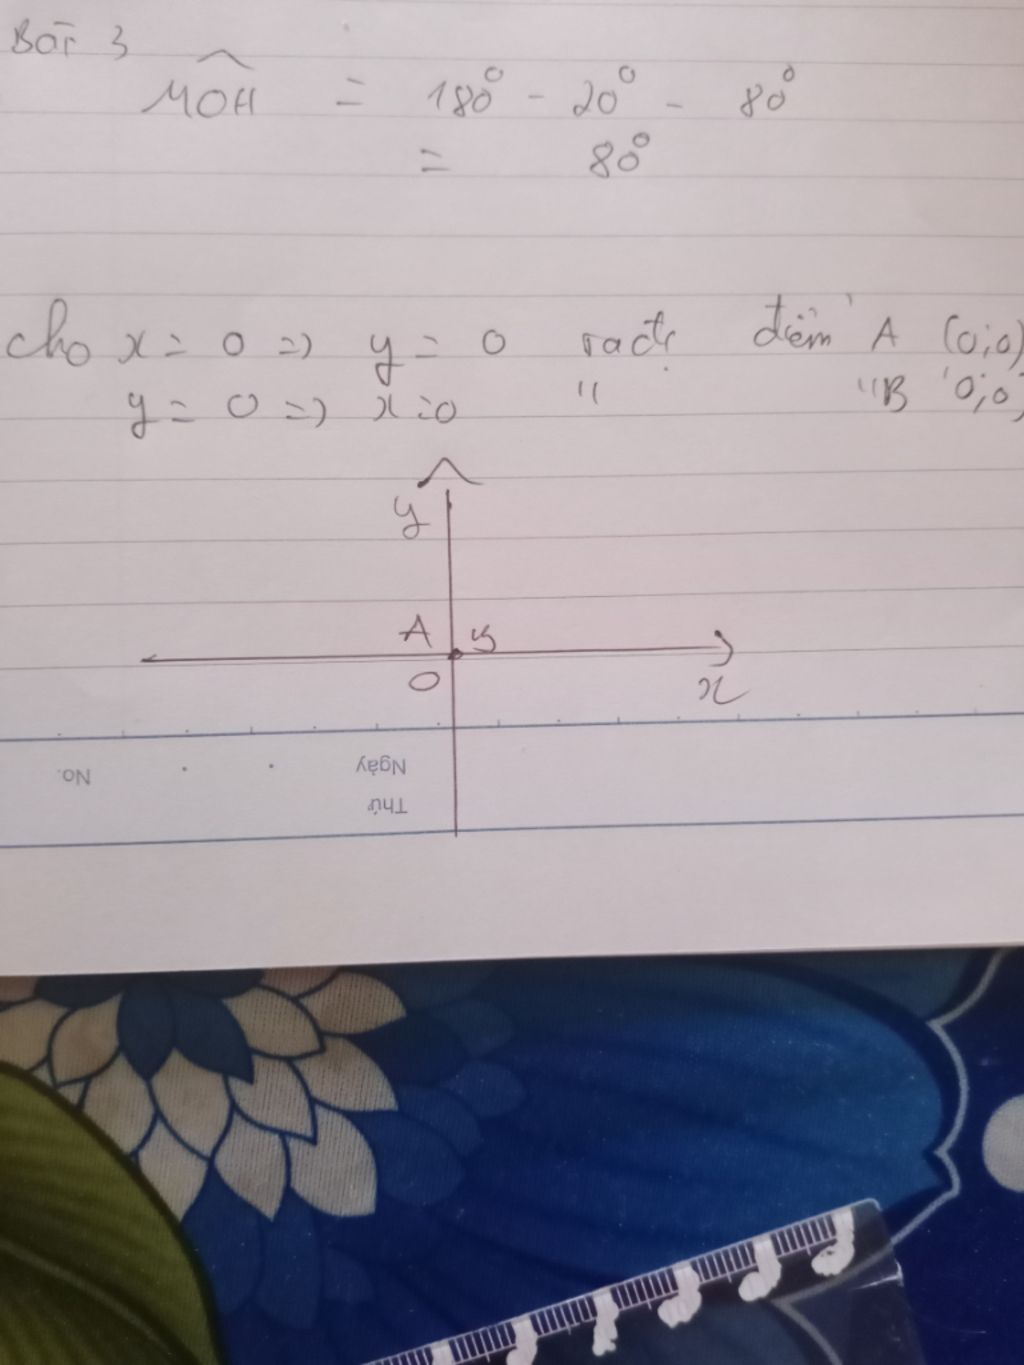 Bài 3
MOH = 180° - 20° - 80°
= 80°
cho x = 0 => y = 0 ta đc điểm A (0;0)
y = 0 => x = 0 " "B (0;0)
y
A B
O
x
No.
Ngày
Thứ